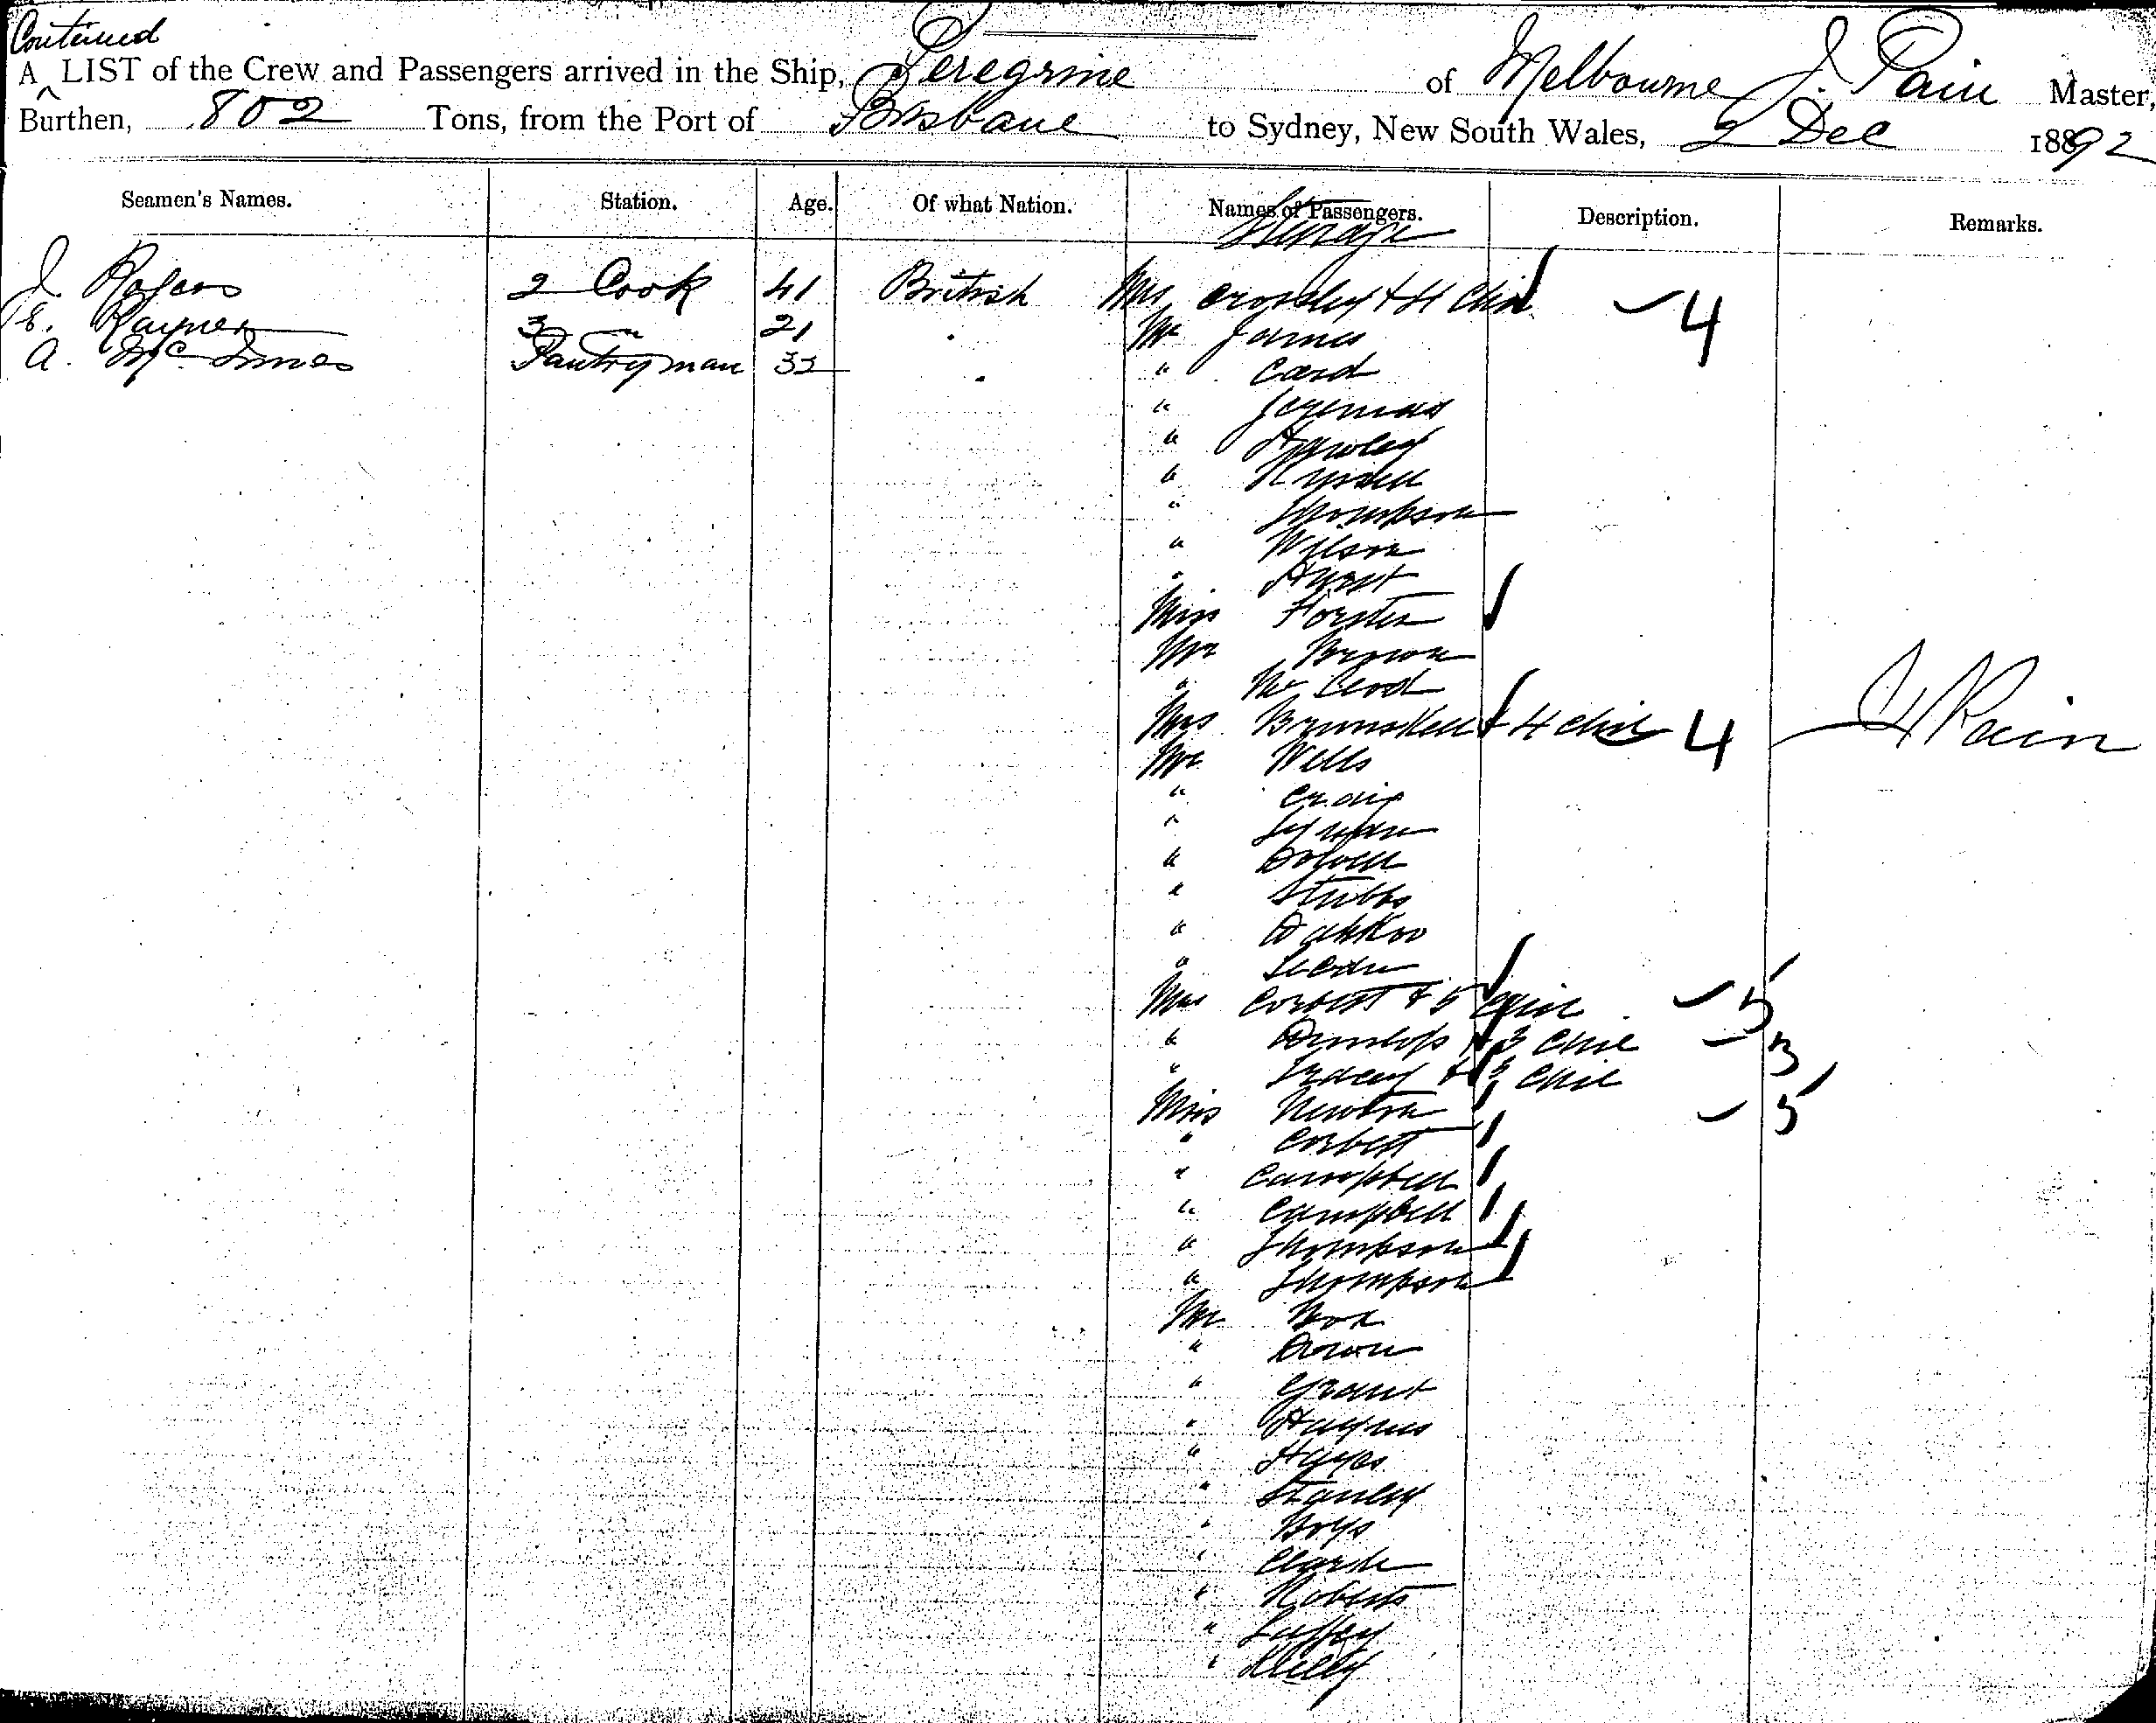 Continued
A LIST of the Crew and Passengers arrived in the Ship, Peregrine of Melbourne J. Pain Master,
Burthen, 802 Tons, from the Port of Brisbane to Sydney, New South Wales, 2 Dec 1892
Seamen's Names. Station. Age. Of what Nation. Names of Passengers. Description. Remarks.
Steerage
J. Rogers 2 Cook 41 British Mrs Crossley + 4 Chil 4
E. Rayner 3 " 21 " Mr James
A. McInnes Pantryman 32 " " Card
" Jeremias
" Hawley
" Russell
" Thompson
" Wilson
" Hurst
Miss Forster
Mr Brown
" McLeod
Mrs Brunskell + 4 Chil 4 J Pain
Mr Wells
" Craig
"
"
" Stubbs
"
"
Mrs Corbett + 5 Chil 5
" Dunlop + 3 Chil 3
" Tracey + 3 Chil
Miss Newton 5
" Corbett
" Campbell
" Campbell
" Thompson
" Thompson
Mr Box
" Brown
" Grant
" Haynes
" Hayes
" Stanley
" Boys
" Clarke
" Roberts
" Luffey
" Kelly